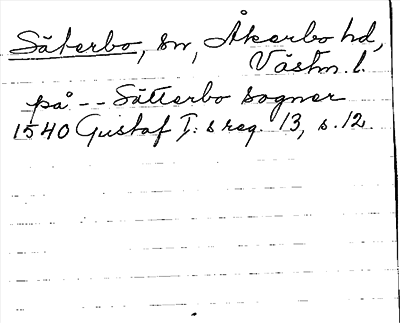 Säterbo, sn, Åkerbo hd,
Västm. l.
på -- Sätterbo sogner
1540 Gustaf I:s reg. 13, s. 12.